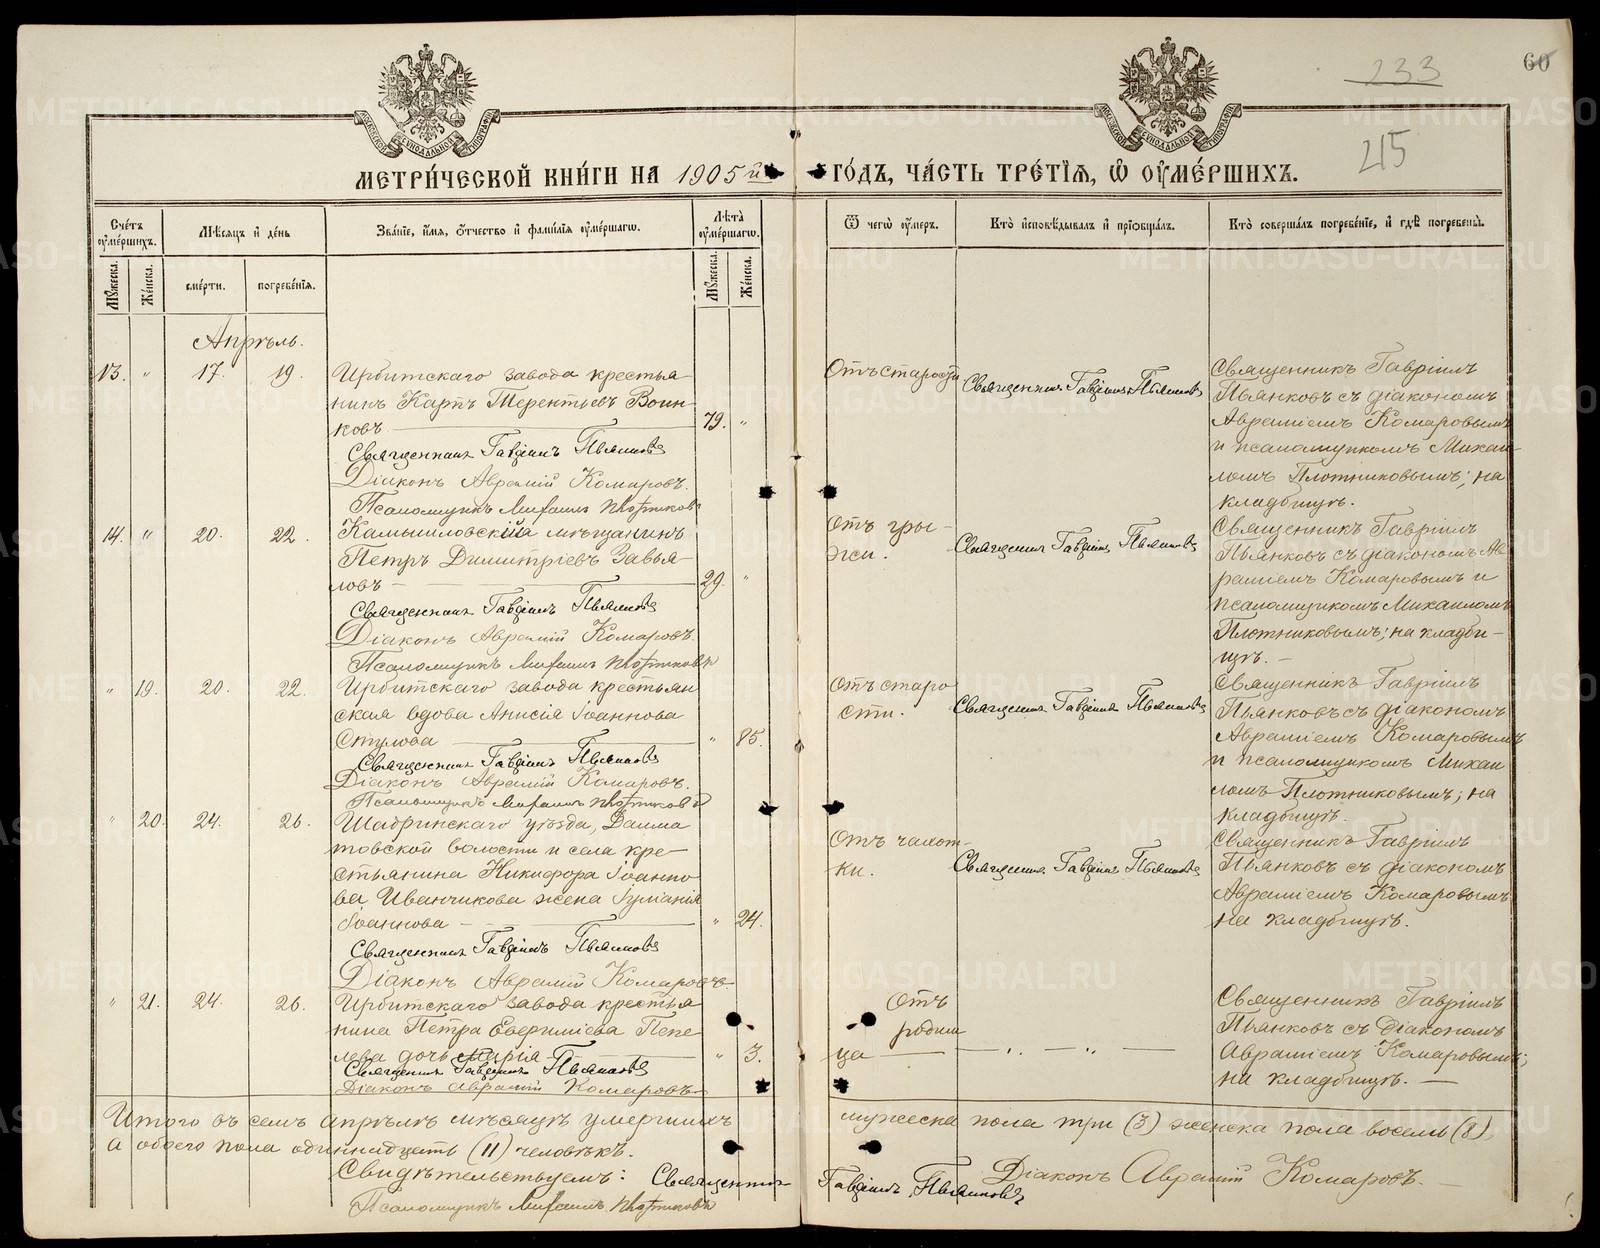 233
60
215
МЕТРИ́ЧЕСКОЙ КНИ́ГИ НА 1905й ГО́ДЪ, ЧА́СТЬ ТРЕ́ТІЯ, Ѡ ОУМЕ́РШИХЪ.
Сче́тъ оуме́ршихъ.
Мѣсяцъ и де́нь
Зва́ніе, и́мя, о́тчество и фами́лія оуме́ршагѡ.
Лѣта оуме́ршагѡ.
Ѿ чегѡ̀ оу́меръ.
Кто̀ исповѣдывалъ и приѡбща́лъ.
Кто̀ соверша́лъ погребе́ніе, и гдѣ погребены̀.
Му́жеска.
Же́нска.
сме́рти.
погребе́нія.
Му́жеска.
Же́нска.
Апрѣль.
13. " 17. 19.
Ирбитскаго завода крестья-
нинъ Карпъ Терентьевъ Воин-
ковъ 79. "
Священникъ Гавріилъ Пьянковъ
Діаконъ Аврамій Комаровъ.
Псаломщикъ Михаилъ Плотниковъ
Отъ старости
Священникъ Гавріилъ Пьянковъ
Священникъ Гавріилъ
Пьянковъ съ діакономъ
Авраміемъ Комаровымъ
и псаломщикомъ Михаи-
ломъ Плотниковымъ; на
кладбищѣ.
14. " 20. 22.
Камышловскій мѣщанинъ
Петръ Димитріевъ Завья-
ловъ 29. "
Священникъ Гавріилъ Пьянковъ
Діаконъ Аврамій Комаровъ.
Псаломщикъ Михаилъ Плотниковъ
Отъ гры-
жи.
Священникъ Гавріилъ Пьянковъ
Священникъ Гавріилъ
Пьянковъ съ діакономъ Ав-
раміемъ Комаровымъ и
псаломщикомъ Михаиломъ
Плотниковымъ; на кладби-
щѣ.
" 19. 20. 22.
Ирбитскаго завода крестьян
ская вдова Анисія Іоаннова
Стулова " 85.
Священникъ Гавріилъ Пьянковъ
Діаконъ Аврамій Комаровъ.
Псаломщикъ Михаилъ Плотниковъ
Отъ старо
сти.
Священникъ Гавріилъ Пьянковъ
Священникъ Гавріилъ
Пьянковъ съ діакономъ
Авраміемъ Комаровымъ
и псаломщикомъ Михаи
ломъ Плотниковымъ; на
кладбищѣ.
" 20. 24. 26.
Шадринскаго уѣзда, Далма
товской волости и села кре-
стьянина Никифора Іоанно
ва Иванчикова жена Іуліанія
Іоаннова " 24.
Священникъ Гавріилъ Пьянковъ
Діаконъ Аврамій Комаровъ.
Отъ чахот-
ки.
Священникъ Гавріилъ Пьянковъ
Священникъ Гавріилъ
Пьянковъ съ діакономъ
Авраміемъ Комаровымъ
на кладбищѣ.
" 21. 24. 26.
Ирбитскаго завода крестья
нина Петра Евфиміева Пепе-
лева дочь Марія " 3.
Священникъ Гавріилъ Пьянковъ
Діаконъ Аврамій Комаровъ
Отъ
родим
ца
Священникъ Гавріилъ
Пьянковъ съ діакономъ
Авраміемъ Комаровымъ;
на кладбищѣ.
Итого въ семъ апрѣлѣ мѣсяцѣ умершихъ мужеска пола три (3) женска пола восемь (8),
а обоего пола одиннадцать (11) человѣкъ.
Свидѣтельствуемъ: Священникъ Гавріилъ Пьянковъ Діаконъ Аврамій Комаровъ.
Псаломщикъ Михаилъ Плотниковъ